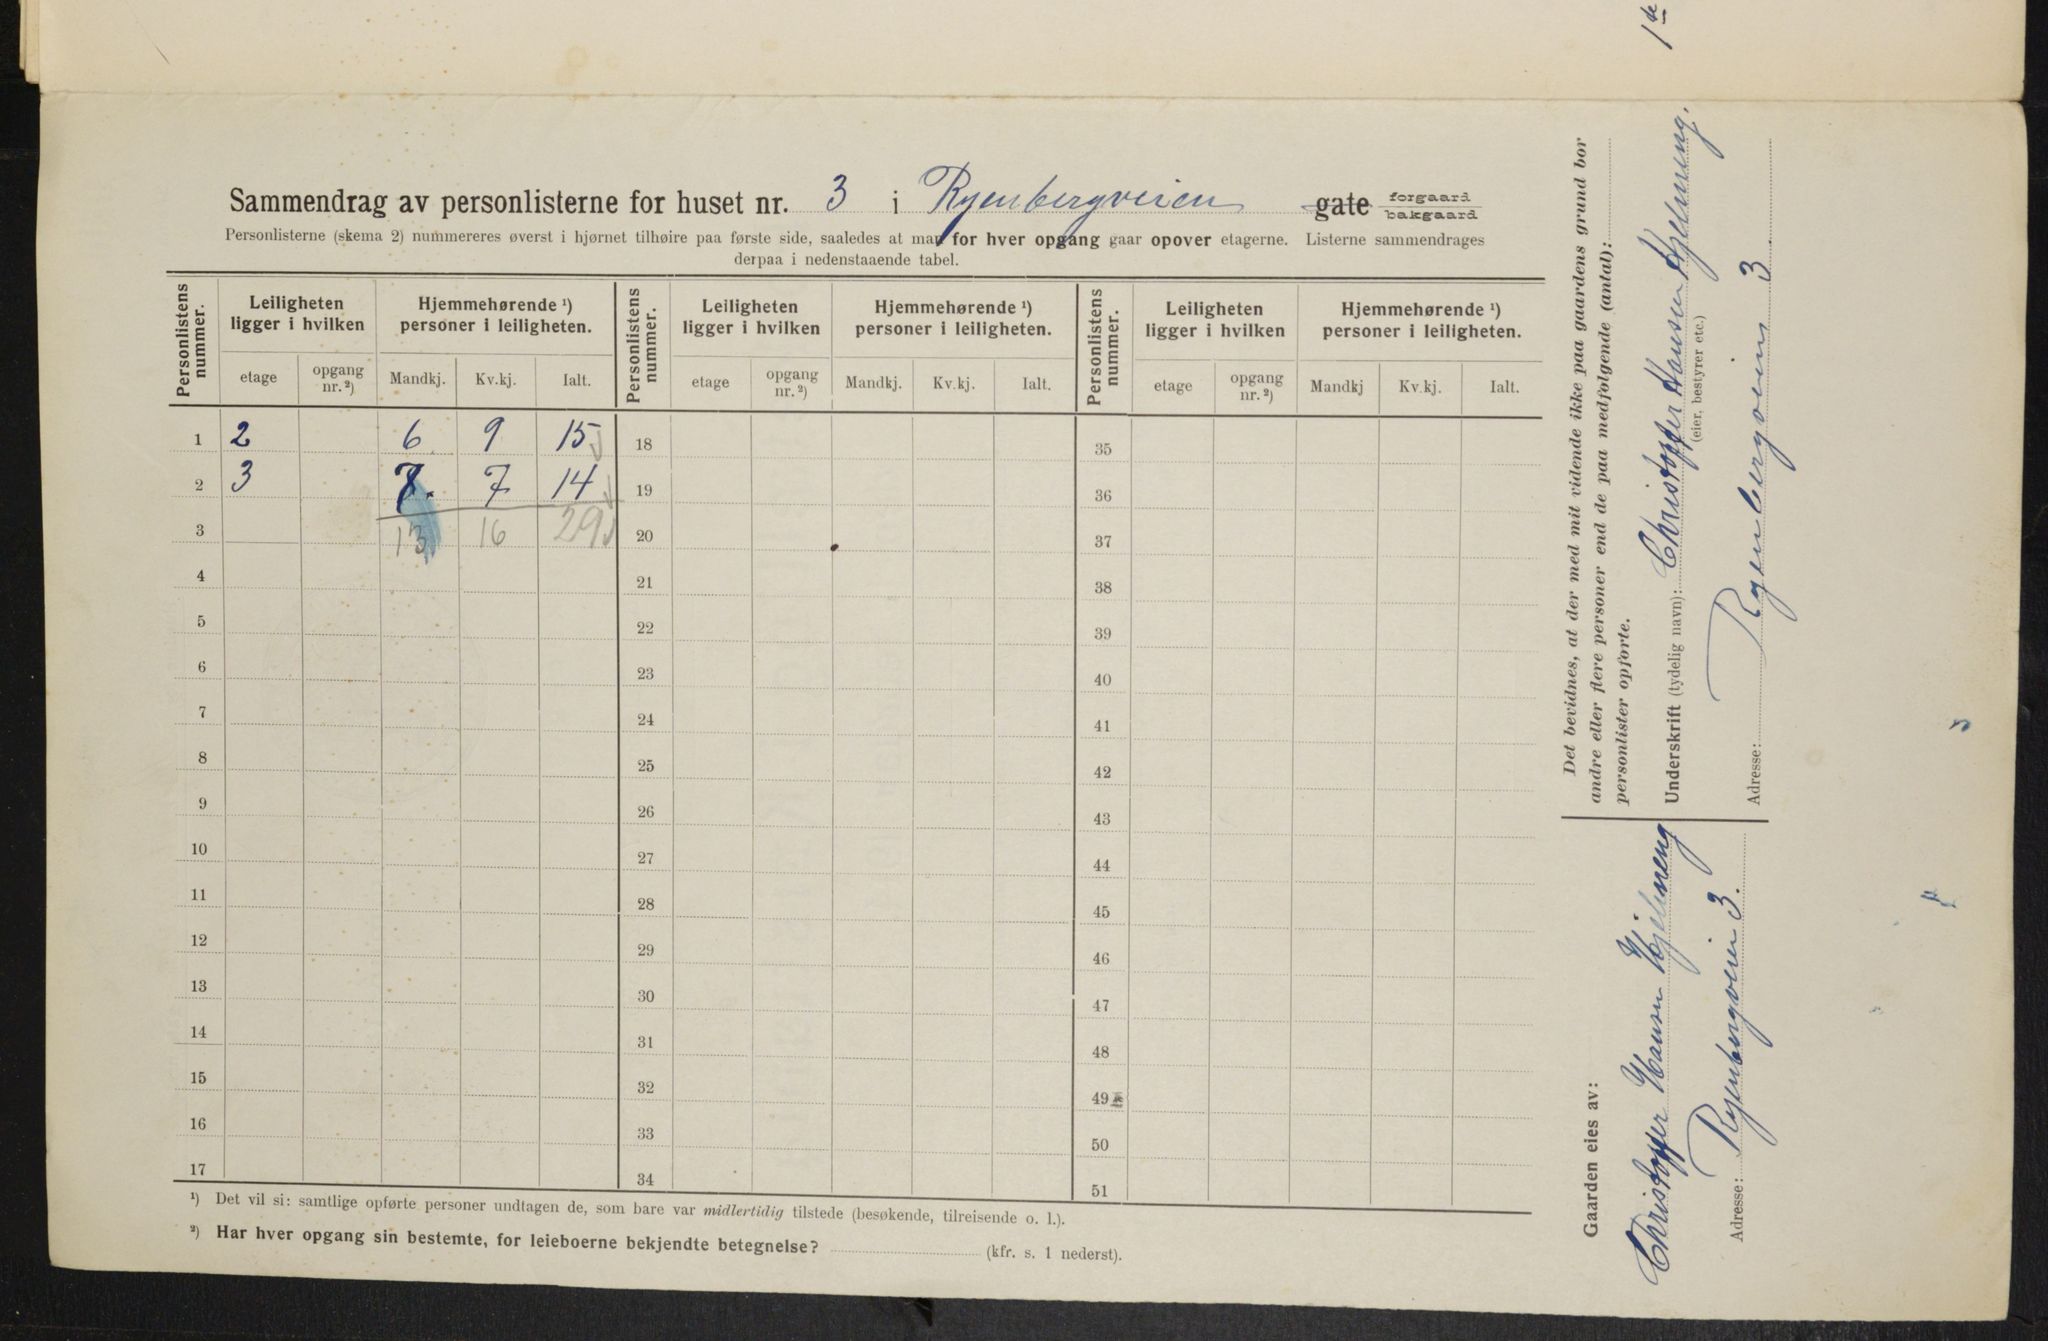 Sammendrag av personlisterne for huset nr. 3 i Ryenbergveien gate forgaard bakgaard
Personlisterne (skema 2) nummereres øverst i hjørnet tilhøire paa første side, saaledes at man for hver opgang gaar opover etagerne. Listerne sammendrages
derpaa i nedenstaaende tabel.
Personlistens nummer. Leiligheten ligger i hvilken Hjemmehørende ¹) personer i leiligheten. Personlistens nummer. Leiligheten ligger i hvilken Hjemmehørende ¹) personer i leiligheten. Personlistens nummer. Leiligheten ligger i hvilken Hjemmehørende ¹) personer i leiligheten.
etage opgang nr. ²) Mandkj. Kv.kj. Ialt. etage opgang nr. ²) Mandkj. Kv.kj. Ialt. etage opgang nr. ²) Mandkj Kv.kj. Ialt.
1 2 6 9 15 18 35
2 3 7. 7 14 19 36
3 13 16 29 20 37
4 21 38
5 22 39
6 23 40
7 24 41
8 25 42
9 26 43
10 27 44
11 28 45
12 29 46
13 30 47
14 31 48
15 32 49
16 33 50
17 34 51
¹) Det vil si: samtlige opførte personer undtagen de, som bare var midlertidig tilstede (besøkende, tilreisende o. l.).
²) Har hver opgang sin bestemte, for leieboerne bekjendte betegnelse? (kfr. s. 1 nederst).
Det bevidnes, at der med mit vidende ikke paa gaardens grund bor
andre eller flere personer end de paa medfølgende (antal):
personlister opførte.
Underskrift (tydelig navn): Christoffer Hansen Hjelmeng.
(eier, bestyrer etc.)
Adresse: Ryenbergveien 3
Gaarden eies av:
Christoffer Hansen Hjelmeng
Adresse: Ryenbergveien 3.
1ste